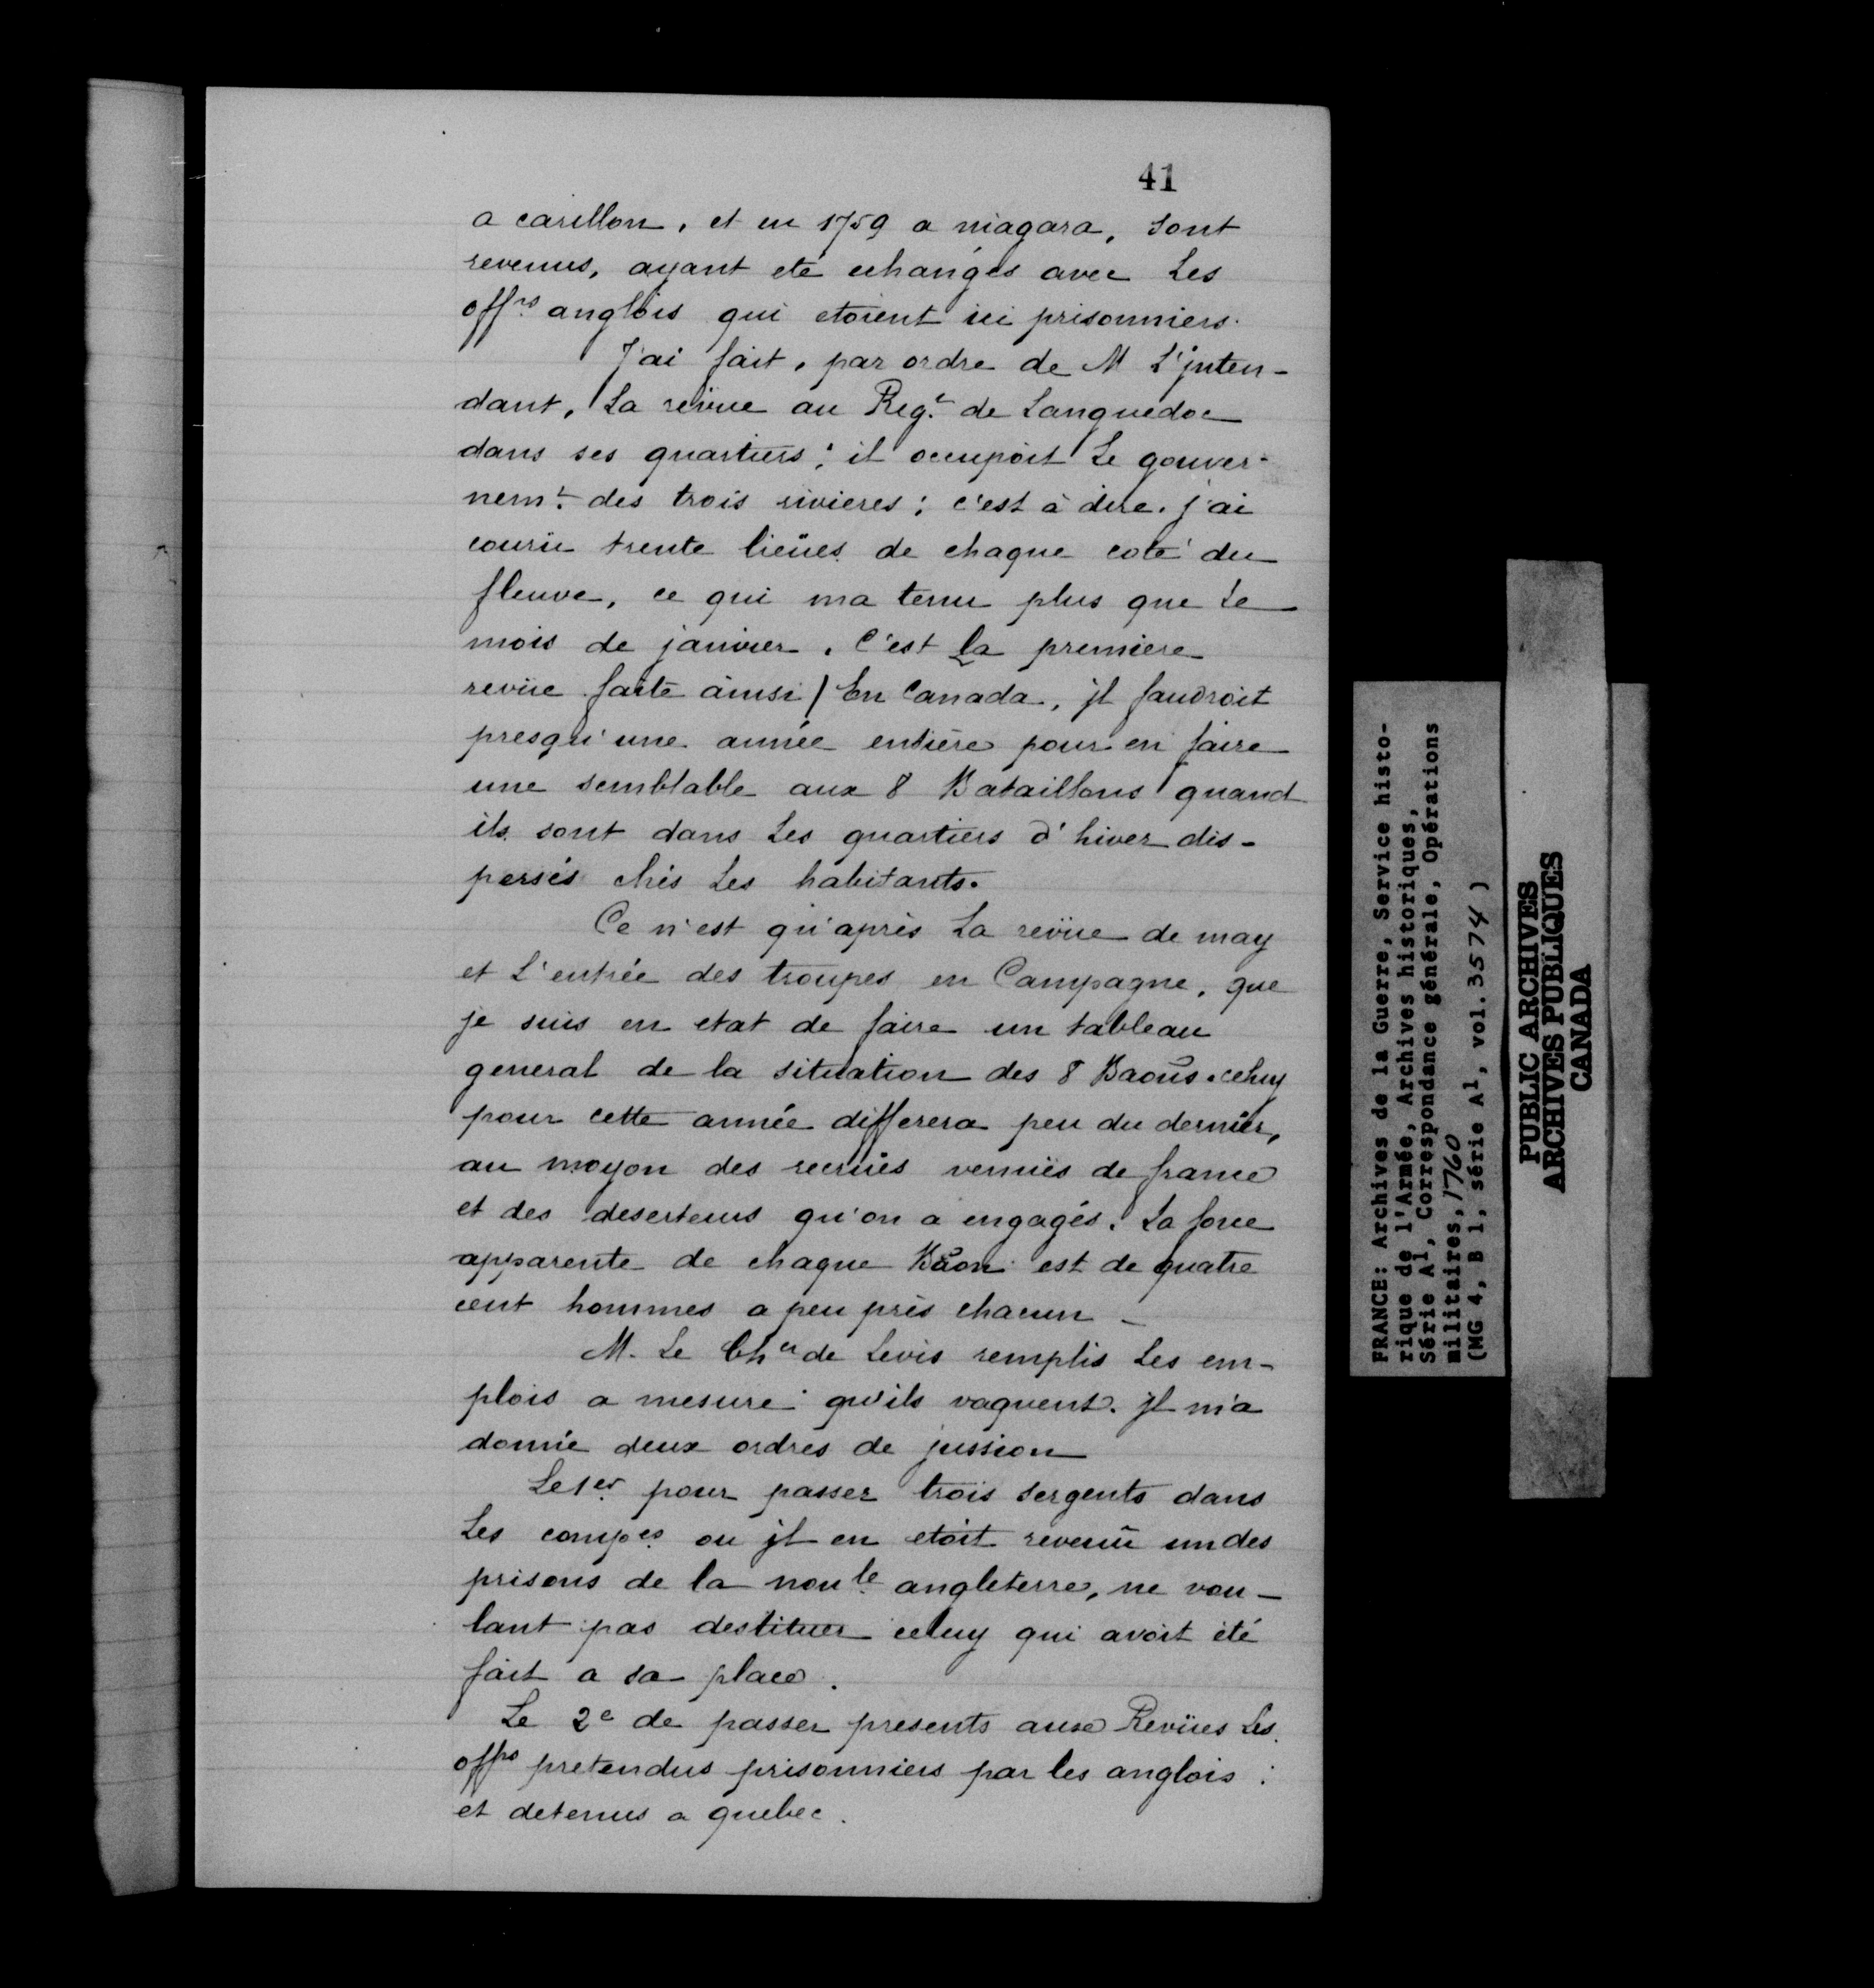 41
a carillon, et en 1759 a niagara, sont
revenus, ayant eté echangés avec Les
offrs anglois qui etoient ici prisonniers.
J'ai fait, par ordre de M L'jnten-
dant, La revüe au Regt de Languedoc
dans ses quartiers; il occupoit Le gouver-
nemt des trois rivieres; c'est à dire. j'ai
couru trente lieües de chaque coté du
fleuve, ce qui ma tenu plus que Le
mois de janvier. C'est La premiere
revüe faite ainsi / En Canada, jl faudroit
presqu'une année entière pour en faire
une semblable aux 8 Bataillons quand
ils sont dans Les quartiers d'hiver dis-
persés chés Les habitants.
Ce n'est qu'après La revüe de may
et L'entrée des troupes en Campagne, que
je suis en etat de faire un tableau
general de la situation des 8 Baons. celuy
pour cette année differera peu du dernier,
au moyon des recrües venües de france
et des deserteurs qu'on a engagés. La force
apparente de chaque Baon est de quatre
cent hommes a peu près chacun -
M. Le Cher de Levis remplis Les em-
plois a mesure qu'ils vaquent. jl m'a
donné deux ordres de jussion
Le 1er pour passer trois sergents dans
Les compes ou jl en etoit revenü un des
prisons de la noule angleterre, ne vou-
lant pas destituer celuy qui avoit été
fait a sa place.
Le 2e de passer presents aux Revües Les
offrs pretendus prisonniers par les anglois:
et detenus a quebec.
FRANCE: Archives de la Guerre, Service histo-
rique de l'Armée, Archives historiques,
Série A1, Correspondance générale, Opérations
militaires, 1760
(MG 4, B 1, série A1, vol. 3574)
PUBLIC ARCHIVES
ARCHIVES PUBLIQUES
CANADA